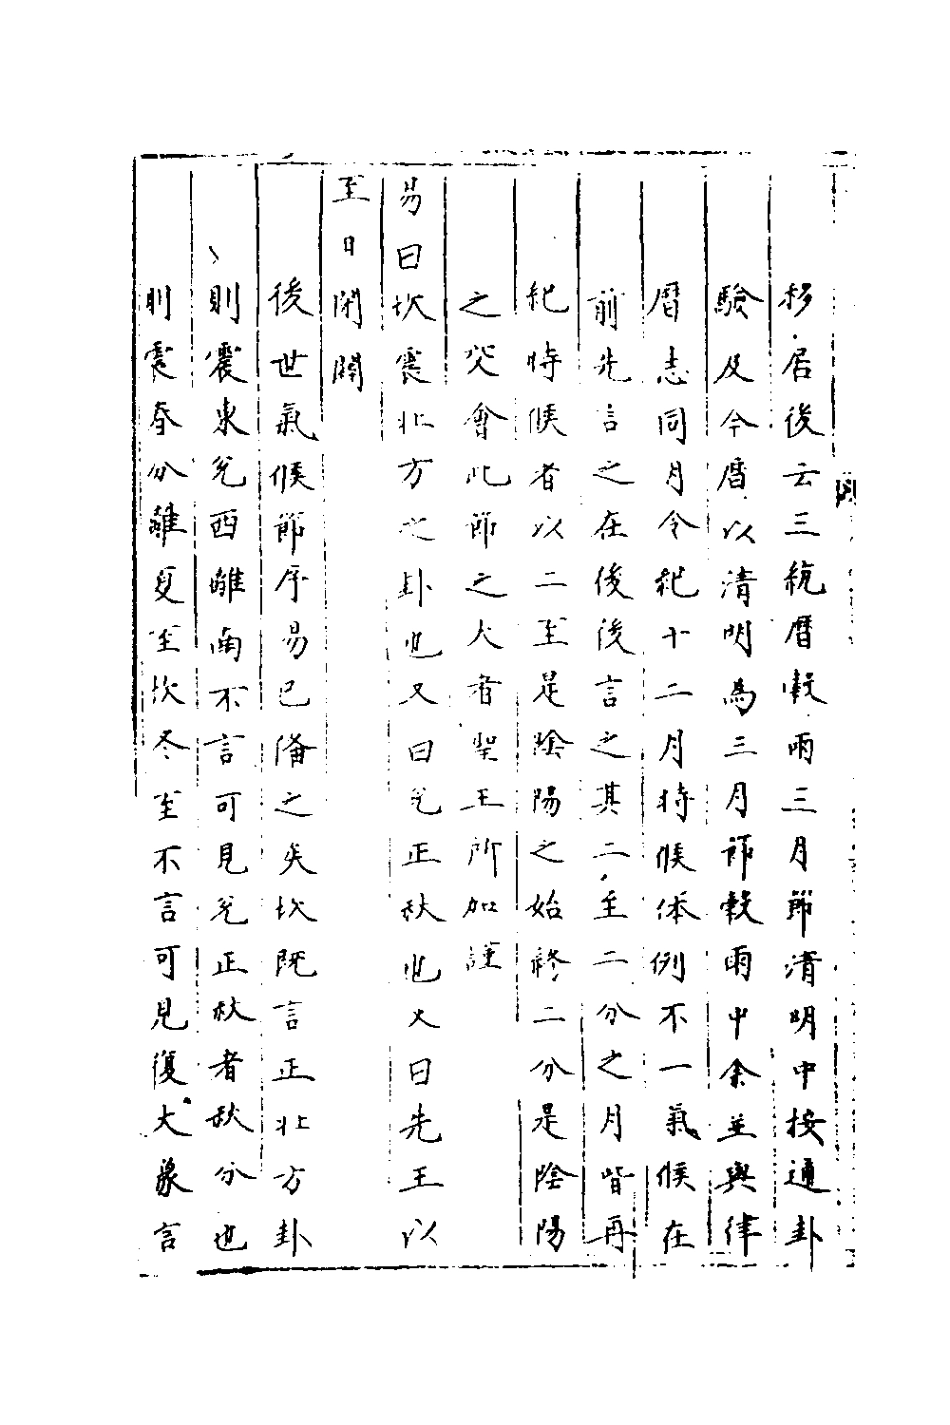 移居後云三統曆穀雨三月節清明中按通卦
驗及今曆以清明為三月節穀雨中余並與律
曆志同月令紀十二月時候体例不一氣候在
前先言之在後後言之其二至二分之月皆再
紀時候者以二至是陰陽之始終二分是陰陽
之交會此節之大者聖王所加謹
易曰坎震北方之卦也又曰兌正秋也又曰先王以
至日閉關
後世氣候節序易已俻之矣坎既言正北方卦
則震東兌西離南不言可見兌正秋者秋分也
則震春分離夏至坎冬至不言可見復大象言